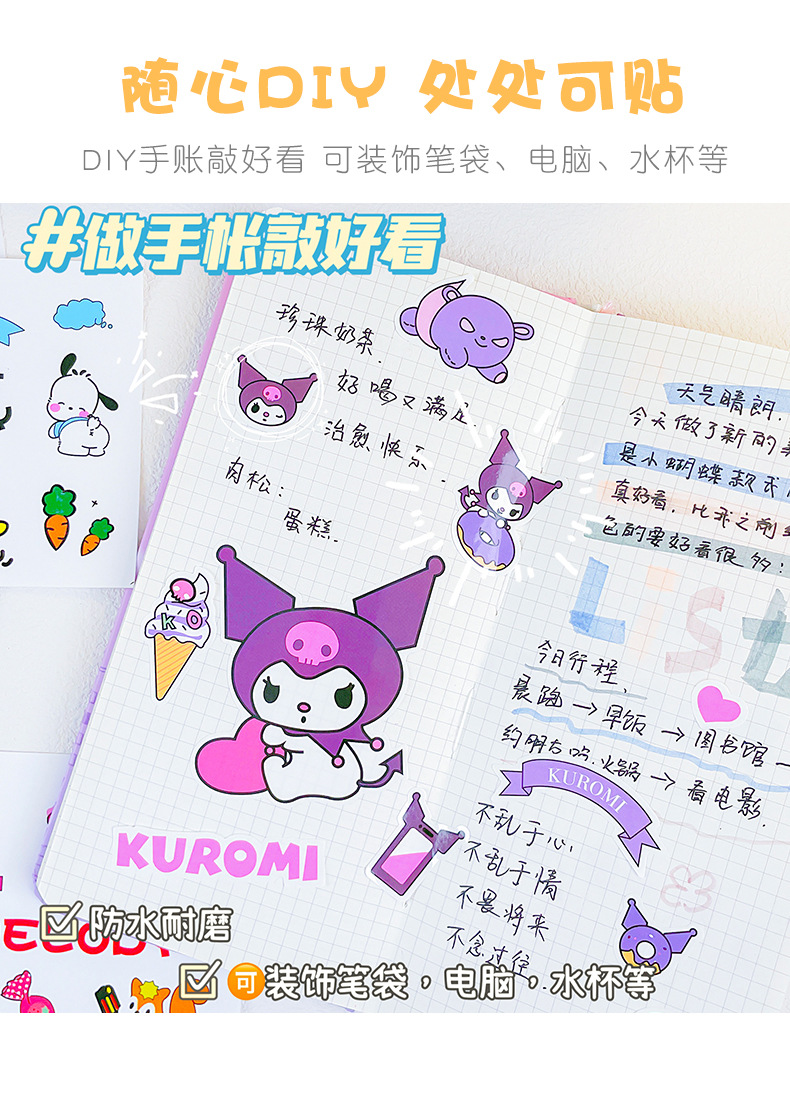 随心DIY 处处可贴
DIY手账敲好看 可装饰笔袋、电脑、水杯等
#做手帐敲好看
珍珠奶茶.
好喝又满足.
治愈快乐.
肉松:
蛋糕.
K O
KUROMI
天气晴朗.
今天做了新的美
是小蝴蝶款式
真好看, 比我之前
色的要好看很多:
List
今日行程、
晨跑→早饭→图书馆→
约朋友吃.火锅→看电影.
KUROMI
不乱于心
不乱于情
不畏将来
不念过往.
防水耐磨
可装饰笔袋，电脑，水杯等